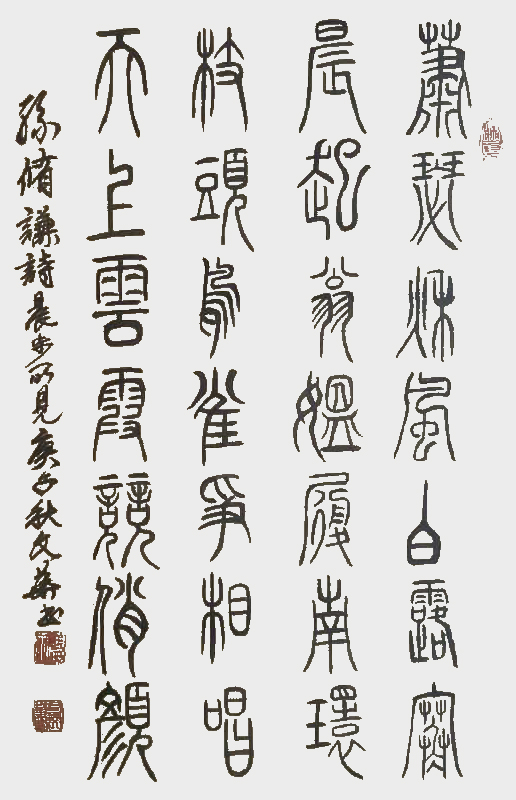 蕭瑟秌風白露寒
晨起翁媼履南環
枝頭鳥雀爭相唱
天上雲霞競俏顏
孫脩謙詩晨步所見庚子秋文華書